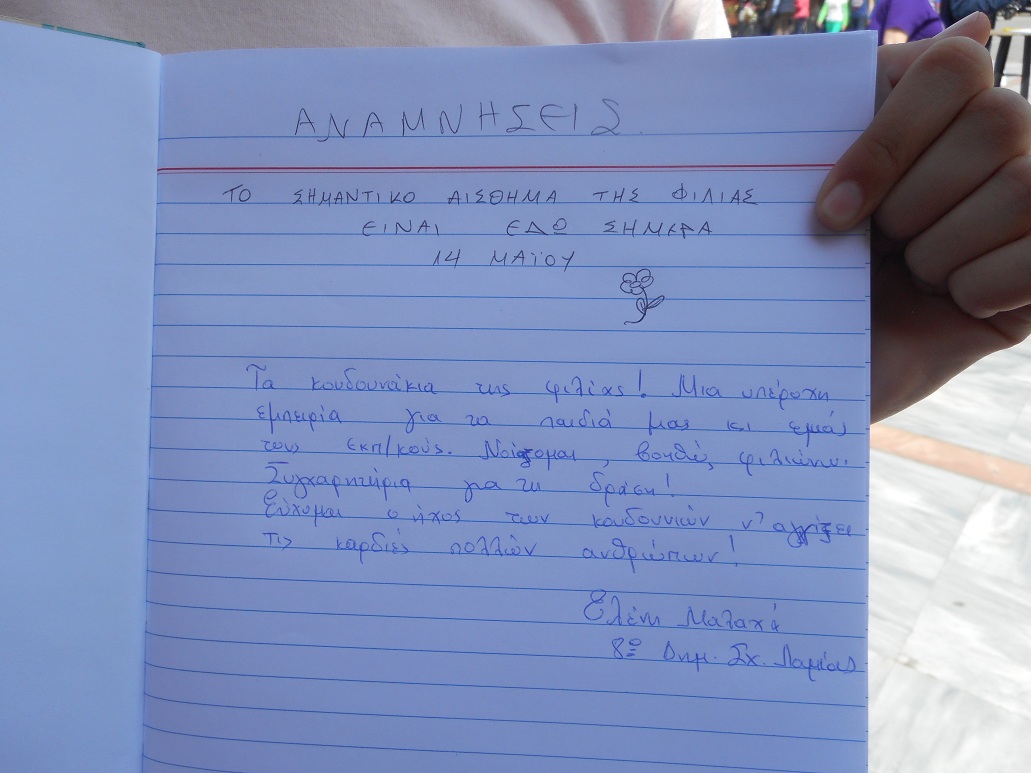 ΑΝΑΜΝΗΣΕΙΣ.
ΤΟ ΣΗΜΑΝΤΙΚΟ ΑΙΣΘΗΜΑ ΤΗΣ ΦΙΛΙΑΣ
ΕΙΝΑΙ ΕΔΩ ΣΗΜΕΡΑ
14 ΜΑΪΟΥ
Τα κουδουνάκια της φιλίας! Μια υπέροχη
εμπειρία για τα παιδιά μας κι εμάς
τους εκπ/κούς. Νοιάζομαι, βοηθώ, φιλιώνω.
Συγχαρητήρια για τη δράση!
Εύχομαι ο ήχος των κουδουνιών ν' αγγίξει
τις καρδιές πολλών ανθρώπων!
Ελένη Μαλαχά
8ο Δημ. Σχ. Λαμίας